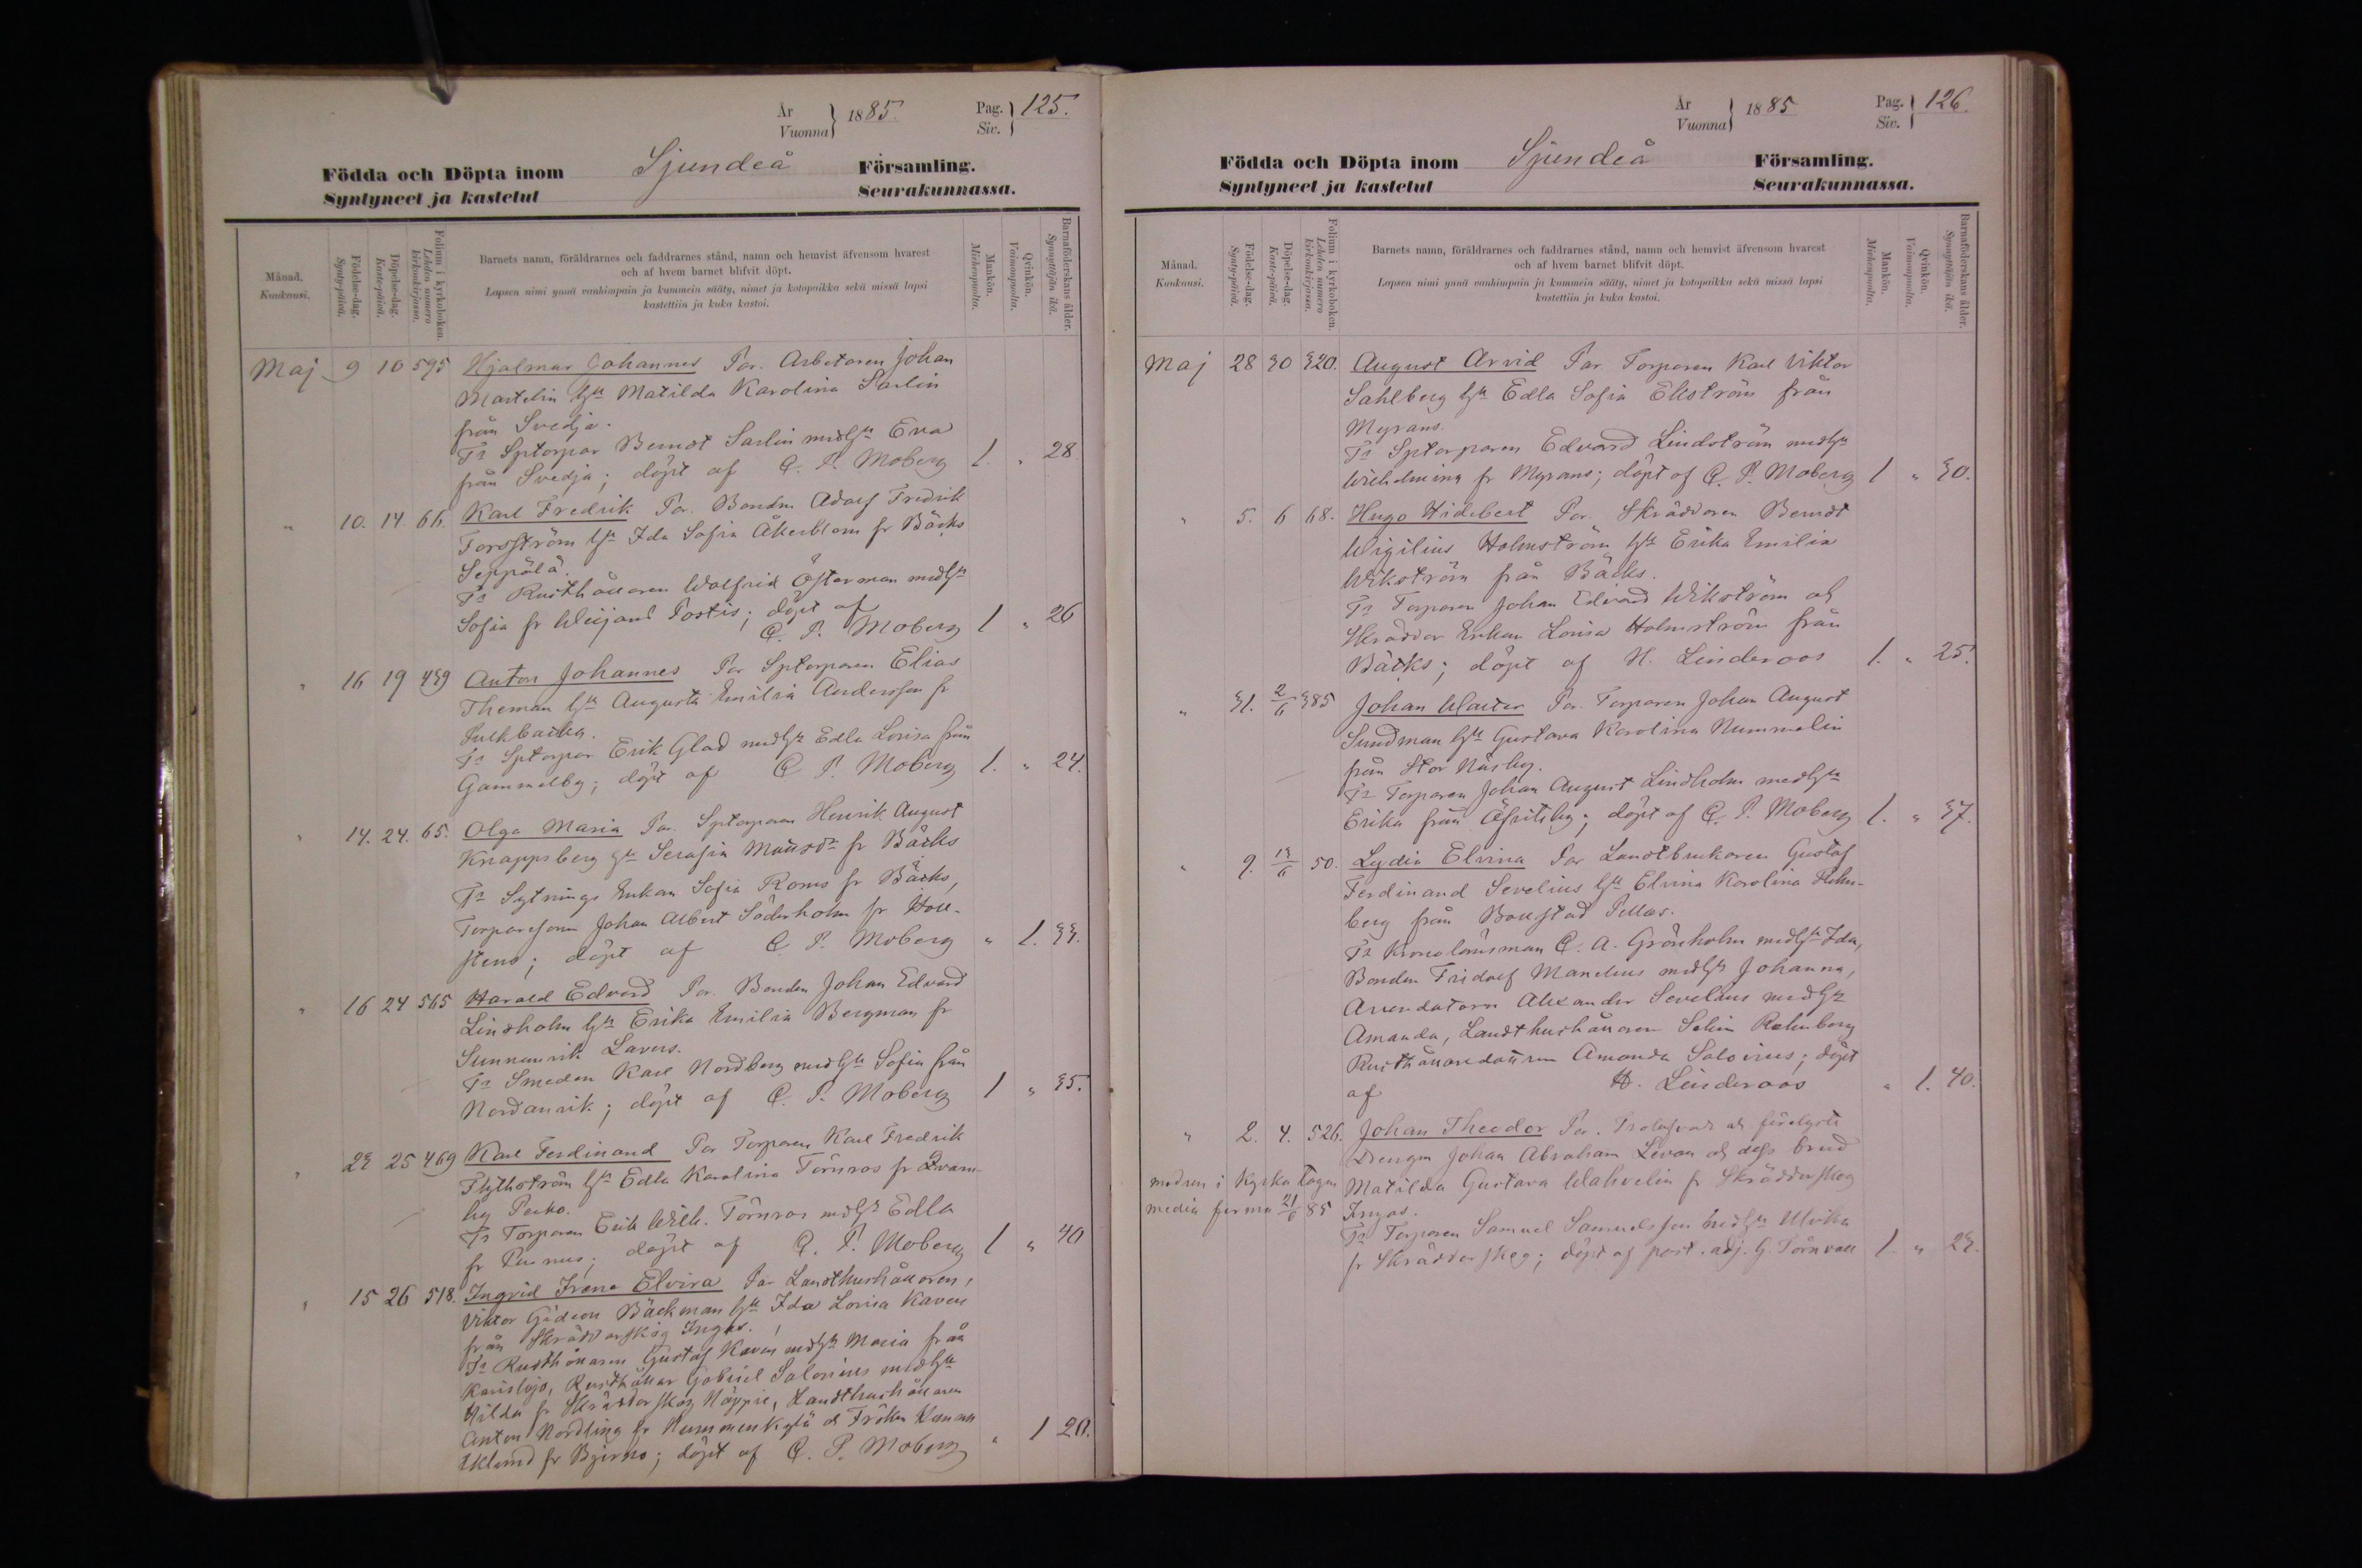 År
Vuonna } 1885. Pag.
Siv. } 125.
Födda och Döpta inom Sjundeå Församling.
Syntyneet ja kastetut Seurakunnassa.
Månad.
Kuukausi.
Födelse-dag.
Synty-päivä.
Döpelse-dag.
Kaste-päivä.
Folium i kyrkoboken.
Lehden numero kirkonkirjassa.
Barnets namn, föräldrarnes och faddrarnes stånd, namn och hemvist äfvensom hvarest
och af hvem barnet blifvit döpt.
Lapsen nimi ynnä vanhimpain ja kummein sääty, nimet ja kotopaikka sekä missä lapsi
kastettiin ja kuka kastoi.
Mankön.
Miehenpuolta.
Qvinkön.
Vaimonpuolta.
Barnaföderskans ålder.
Synnyttäjän ikä.
Maj 9 10 595 Hjalmar Johannes Par. Arbetaren Johan
Martelin hst Matilda Karolina Sarlin
från Svedja.
Fr Sptorpar Berndt Sarlin mdhst Eva
från Svedja; döpt af C. P. Moberg 1. " 28
" 10. 14 66. Karl Fredrik Par. Bondn Adolf Fredrik
Forsström hst Ida Sofia Åkerblom fr Bäcks
Seppälä.
Fr Rusthållaren Wolfrid Österman mdhst
Sofia fr Postis; döpt af
C. P. Moberg 1 " 26
" 16 19 439 Anton Johannes Par Sptorparen Elias
Theman hst Augusta Emilia Andersson fr
Fr Sptorpar Erik Glad mdhst Edla Lovisa från
Gammelby; döpt af C P. Moberg 1. " 24.
" 14. 24. 65. Olga Maria Par. Sptorparen Henrik August
Knappsberg hst Serafia Månsdr fr Bäcks
Fr Sytnings Enkan Sofia Roms fr Bäcks,
Torparesonen Johan Albert Söderholm fr
döpt af C P. Moberg " 1. 33.
" 16 24 565 Harald Edvard Par. Bonden Johan Edvard
Lindholm hst Erika Emilia Bergman fr
Sunnanvik Lavers.
Fr Smeden Karl Nordberg mdhst Sofia från
Nordanvik; döpt af C. P. Moberg 1 " 35.
" 23 25 469 Karl Ferdinand Par Torparen Karl Fredrik
Flythström hst Edla Karolina Törnros fr Qvarn-
by
Fr Torparen Erik Wilh. Törnros mdhst Edla
fr döpt af C. P. Moberg 1 " 40
" 15 26 518. Ingrid Irene Elvira Par Landthushållaren,
Viktor Gideon Bäckman hst Ida Lovisa Kaven
från Skräddarskog Ingos.
Fr Rusthållaren Gustaf Kaven mdhst Maria från
Karislojo, Rusthållar Gabriel Salonius mdhst
Hilda fr Skräddarskog Näppis, Landthushållaren
Anton Nordling fr Nummenkylä o Fröken
Eklund fr Bjernå; döpt af C. P. Moberg " 1 20.
År
Vuonna } 1885 Pag.
Siv. } 126.
Födda och Döpta inom Sjundeå Församling.
Syntyneet ja kastetut Seurakunnassa.
Månad.
Kuukausi.
Födelse-dag.
Synty-päivä.
Döpelse-dag.
Kaste-päivä.
Folium i kyrkoboken.
Lehden numero kirkonkirjassa.
Barnets namn, föräldrarnes och faddrarnes stånd, namn och hemvist äfvensom hvarest
och af hvem barnet blifvit döpt.
Lapsen nimi ynnä vanhimpain ja kummein sääty, nimet ja kotopaikka sekä missä lapsi
kastettiin ja kuka kastoi.
Mankön.
Miehenpuolta.
Qvinkön.
Vaimonpuolta.
Barnaföderskans ålder.
Synnyttäjän ikä.
Maj 28 30 320. August Arvid Par. Torparen Karl Viktor
Sahlberg hst Edla Sofia Ekström från
Myrans.
Fr Sptorparen Edvard Lindström mdhst
Wilhelmina fr Myrans; döpt af C. P. Moberg 1 " 30.
" 5. 6 68. Hugo Hidebert Par. Skräddaren Berndt
Wigilius Holmström hst Erika Emilia
Wikström från Bäcks.
Fr Torparen Johan Edvard Wikström och
Skräddar Enkan Lovisa Holmström från
Bäcks; döpt af H. Linderoos 1. " 25.
" 31. 2/6 385 Johan Walter Par. Torparen Johan August
Sundman hst Gustava Karolina Nummelin
från Stor Näsby.
Fr Torparen Johan August Lindholm medhst
Erika från Öfvitsby; döpt af C. P. Moberg 1. " 37.
" 9. 13/6 50. Lydia Elvina Par Landtbrukaren Gustaf
Ferdinand Sevelius hst Elvina Karolina Holm-
berg från Bollstad Pellas.
Fr Kronolänsman C. A. Grönholm mdhst Ida,
Bonden Fridolf Manelius mdhst Johanna,
Arrendatorn Alexander Sevelius mdhst
Amanda, Landthushållaren Selim Rehnberg
Rusthållaredottren Amanda Salovius; döpt
af H. Linderoos " 1. 40.
" 2. 4. 526. Johan Theodor Par. Trolofvade och förelyste
Drengen Johan Abraham Levon och dess brud
modren i kyrka tagen Matilda Gustava Wahvelin fr Skräddarskog
media forma 21/6 85 Ingos.
Fr Torparen Samuel Samuelsson mdhst Ulrika
fr Skräddarskog; döpt af past. adj. G. Törnvall 1. " 23.